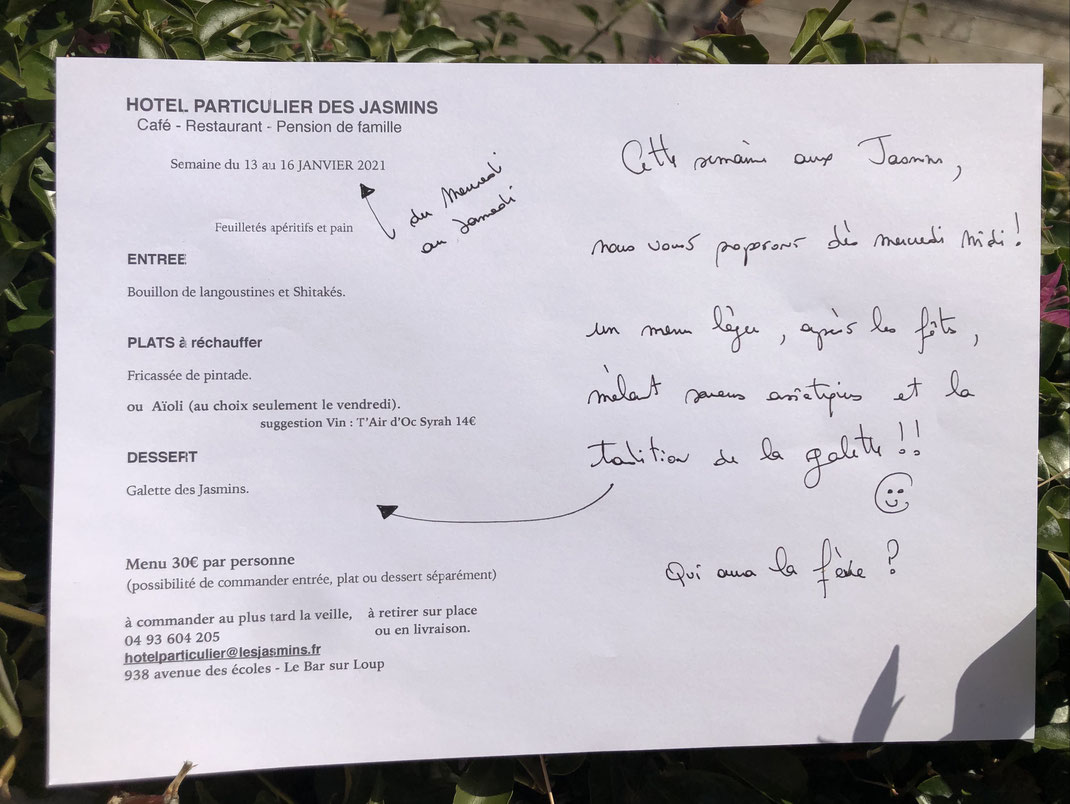 HOTEL PARTICULIER DES JASMINS
Café - Restaurant - Pension de famille
Semaine du 13 au 16 JANVIER 2021
du Mercredi
au Samedi
Feuilletés apéritifs et pain
ENTREE
Bouillon de langoustines et Shitakés.
PLATS à réchauffer
Fricassée de pintade.
ou Aïoli (au choix seulement le vendredi).
suggestion Vin : T'Air d'Oc Syrah 14€
DESSERT
Galette des Jasmins.
Menu 30€ par personne
(possibilité de commander entrée, plat ou dessert séparément)
à commander au plus tard la veille, à retirer sur place
04 93 604 205 ou en livraison.
hotelparticulier@lesjasmins.fr
938 avenue des écoles - Le Bar sur Loup
Cette semaine aux Jasmins,
nous vous proposons dès mercredi midi !
un menu léger, après les fêtes,
mêlant saveurs asiatiques et la
tradition de la galette !!
Qui aura la fève ?